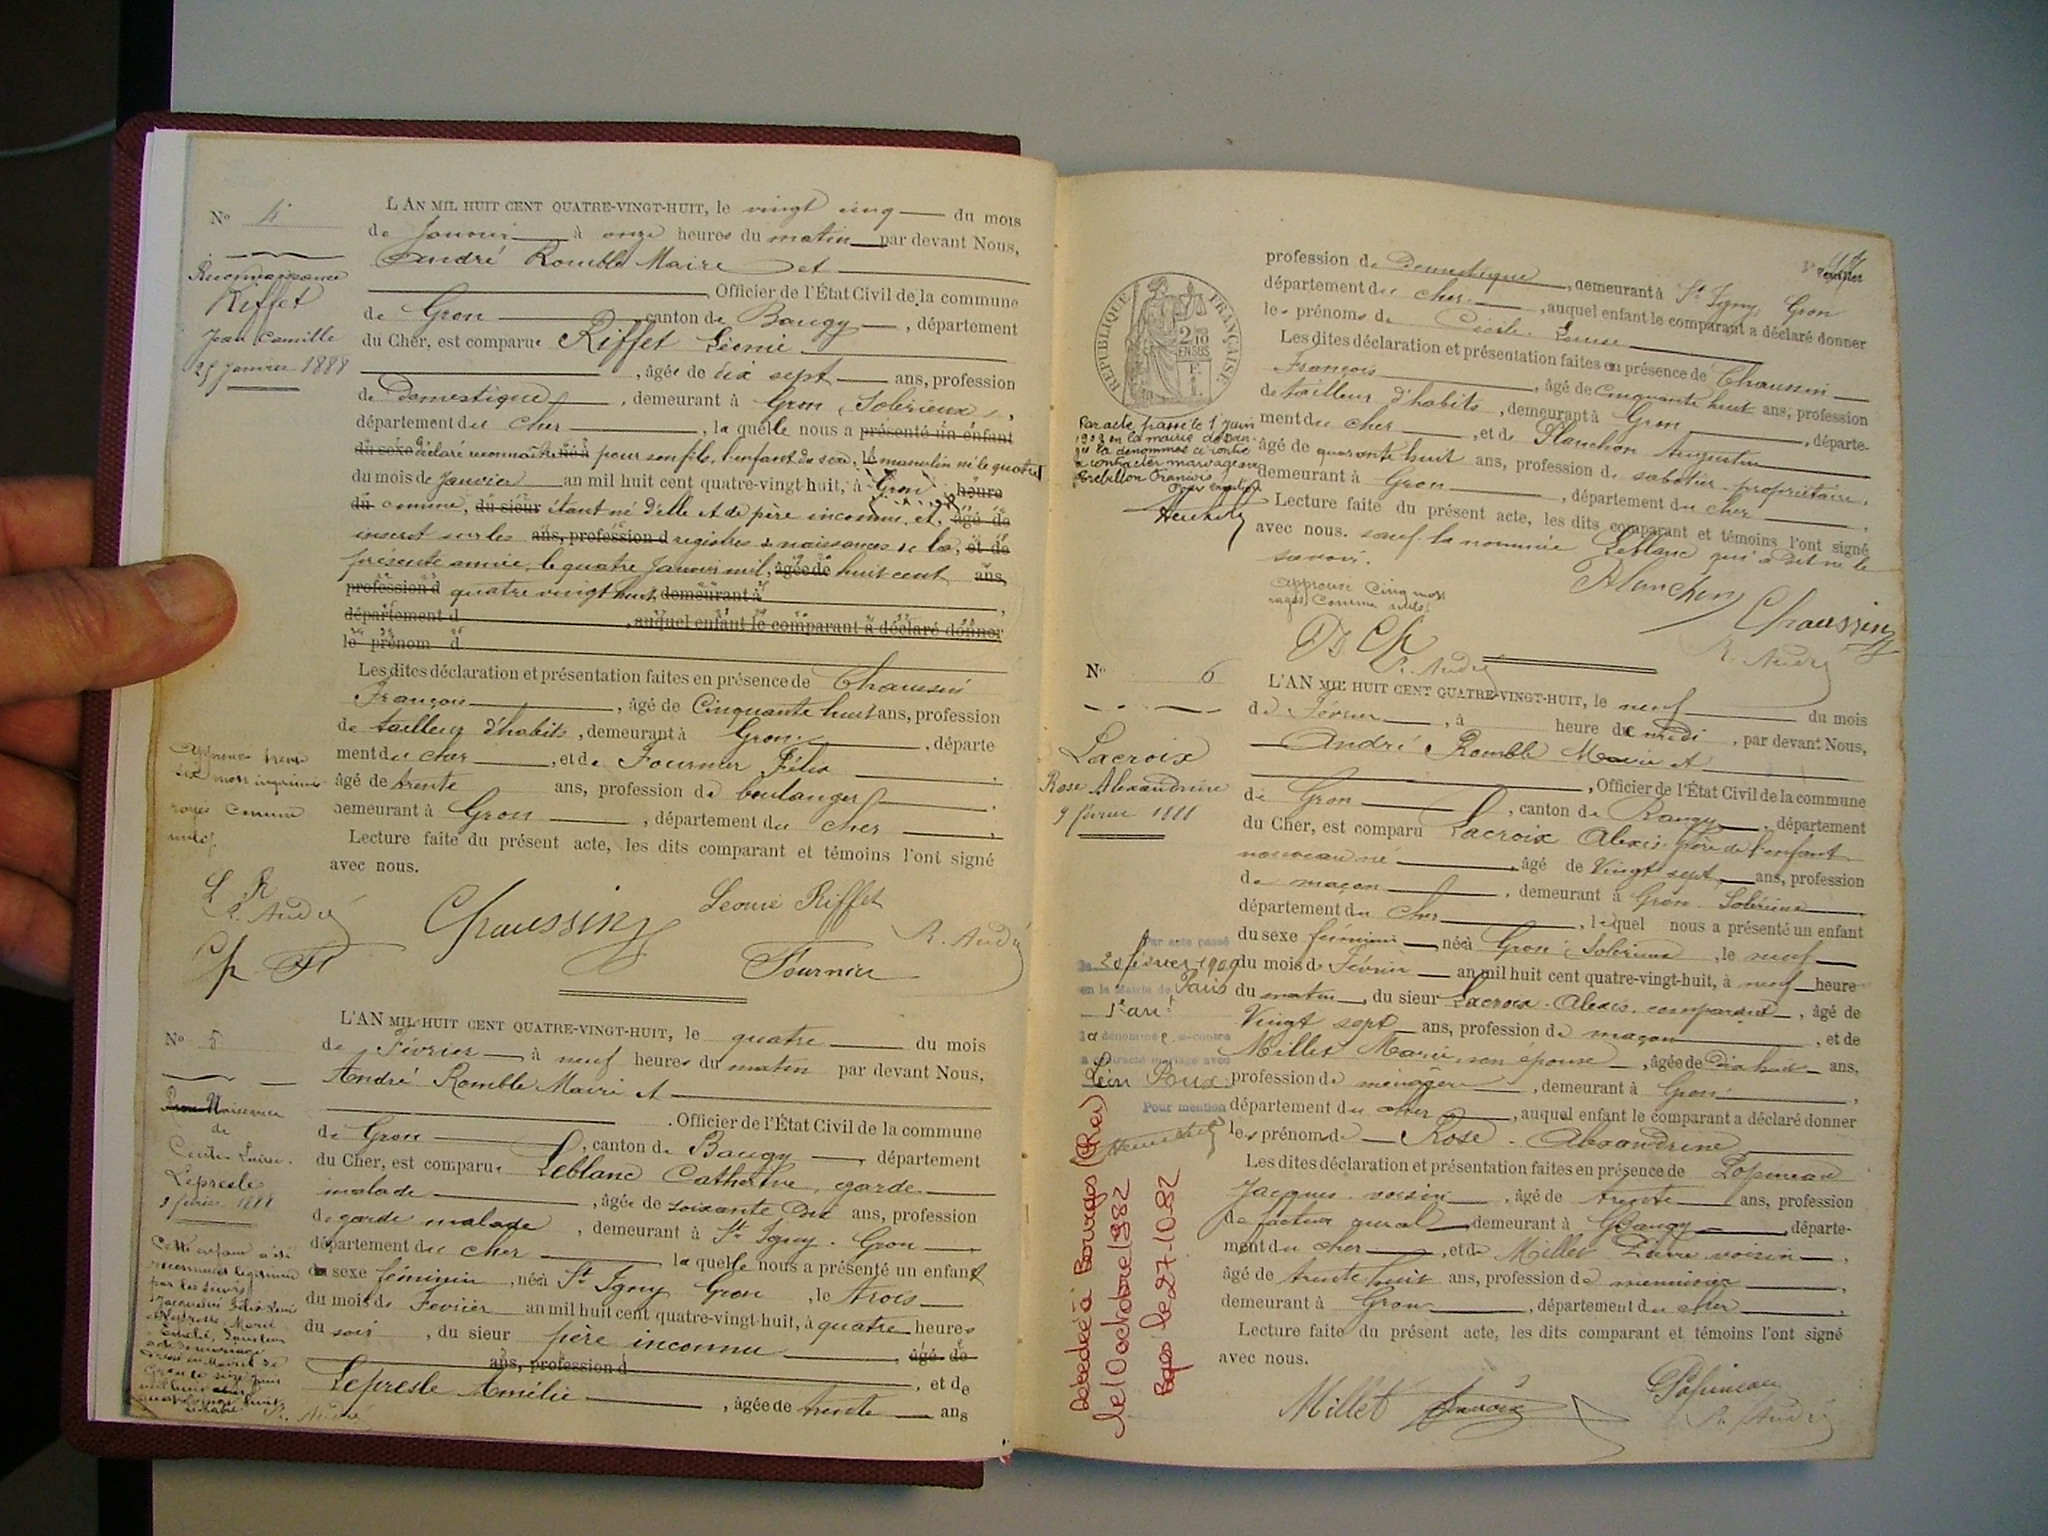 N° 4
Reconnaissance
Riffet
Jean Camille
25 Janvier 1888
L'AN MIL HUIT CENT QUATRE-VINGT-HUIT, le vingt cinq du mois
de Janvier à onze heures du matin par devant Nous,
André Romble Maire et
, Officier de l'État Civil de la commune
de Gron canton de Baugy, département
du Cher, est comparue Riffet Léonie
, âgée de dix sept ans, profession
de Domestique, demeurant à Gron, Solérieux,
département du cher, la quelle nous a présenté un enfant
du sexe déclaré reconnaître né à pour son fils, l'enfant du sexe, le masculin né le quatre
du mois de Janvier an mil huit cent quatre-vingt-huit, à Gron heure
du comune, du sieur étant né d'elle et de père inconnu et, âgé de
inscrit sur les ans, profession d registres de naissances de la, et de
présente année, le quatre Janvier mil, âgée de huit cent ans,
profession d quatre vingt huit, demeurant à
département d , auquel enfant le comparant a déclaré donner
le prénom d
Les dites déclaration et présentation faites en présence de Chaussin
François, âgé de Cinquante huit ans, profession
de tailleur d'habits, demeurant à Gron, départe
ment du cher, et de Fournier Félix
âgé de trente ans, profession de boulanger
demeurant à Gron, département du cher
Lecture faite du présent acte, les dits comparant et témoins l'ont signé
avec nous.
Approuvé trente
six mots imprimés
rayés comme
nuls.
L R
R. André
Ch F
Chaussin
Léonie Riffet
Fournier
R. André
N° 5
Naissance
de
Cécile Louise
Lepresle
3 février 1888
L'AN MIL HUIT CENT QUATRE-VINGT-HUIT, le quatre du mois
de Février à neuf heures du matin par devant Nous,
André Romble Maire et
. Officier de l'État Civil de la commune
de Gron, canton de Baugy, département
du Cher, est comparue Leblanc Catherine, garde
malade, âgée de soixante Dix ans, profession
de garde malade, demeurant à St Igny. Gron
département du cher la quelle nous a présenté un enfant
du sexe féminin, né à St Igny Gron, le trois
du mois de Fevrier an mil huit cent quatre-vingt-huit, à quatre heures
du soir, du sieur père inconnu, âgé de
ans, profession d, et de
Lepresle Amélie, âgée de trente ans
Cette enfant a été
reconnue légitimée
par les sieurs
R. André
profession de Domestique, demeurant à St Igny, Gron
département du cher, auquel enfant le comparant a déclaré donner
les prénoms de Cécile Louise
Les dites déclaration et présentation faites en présence de Chaussin
François, âgé de Cinquante huit ans, profession
de tailleur d'habits, demeurant à Gron, départe-
ment du cher, et de Planchon Augustin
âgé de quarante huit ans, profession de sabotier propriétaire,
demeurant à Gron, département du cher
Lecture faite du présent acte, les dits comparant et témoins l'ont signé
avec nous. sauf la nommée Leblanc qui a dit ne le
savoir.
RÉPUBLIQUE FRANÇAISE
2/10 EN SUS
Par acte passé le 1er juin
en la mairie de
la dénommée ci-contre
a contracté mariage avec
Crebillon François
Pour mention
approuvé Cinq mots
rayés comme nuls.
Planchon
Chaussin
Ch
R. André
R. André
N° 6
Lacroix
Rose Alexandrine
9 février 1888
L'AN MIL HUIT CENT QUATRE-VINGT-HUIT, le neuf du mois
de Février, à heure du midi, par devant Nous,
André Romble Maire et
, Officier de l'État Civil de la commune
de Gron, canton de Baugy, département
du Cher, est comparu Lacroix Alexis père de l'enfant
nouveau né, âgé de Vingt sept ans, profession
de maçon, demeurant à Gron, Solérieux
département du Cher, lequel nous a présenté un enfant
du sexe féminin, né à Gron Solérieux, le neuf
du mois de Février an mil huit cent quatre-vingt-huit, à neuf heure
du matin, du sieur Lacroix Alexis, comparant, âgé de
Vingt sept ans, profession de maçon, et de
Millet Marie son épouse, âgée de Dix huit ans,
profession de ménagère, demeurant à Gron
département du cher, auquel enfant le comparant a déclaré donner
les prénoms de Rose Alexandrine
Les dites déclaration et présentation faites en présence de Popineau
Jacques voisin, âgé de trente ans, profession
de facteur rural, demeurant à Baugy, départe-
ment du cher, et de Millet Pierre voisin
âgé de trente huit ans, profession de menuisier
demeurant à Gron, département du cher
Lecture faite du présent acte, les dits comparant et témoins l'ont signé
avec nous.
Par acte passé
le 20 février 1909
en la Mairie de Paris
1er arrt
la dénommée ci-contre
a contracté mariage avec
Léon Poux
Pour mention
Décédée à Bourges (Cher)
le 10 octobre 1982
le 27-10-82
Millet
Lacroix
Popineau
R. André